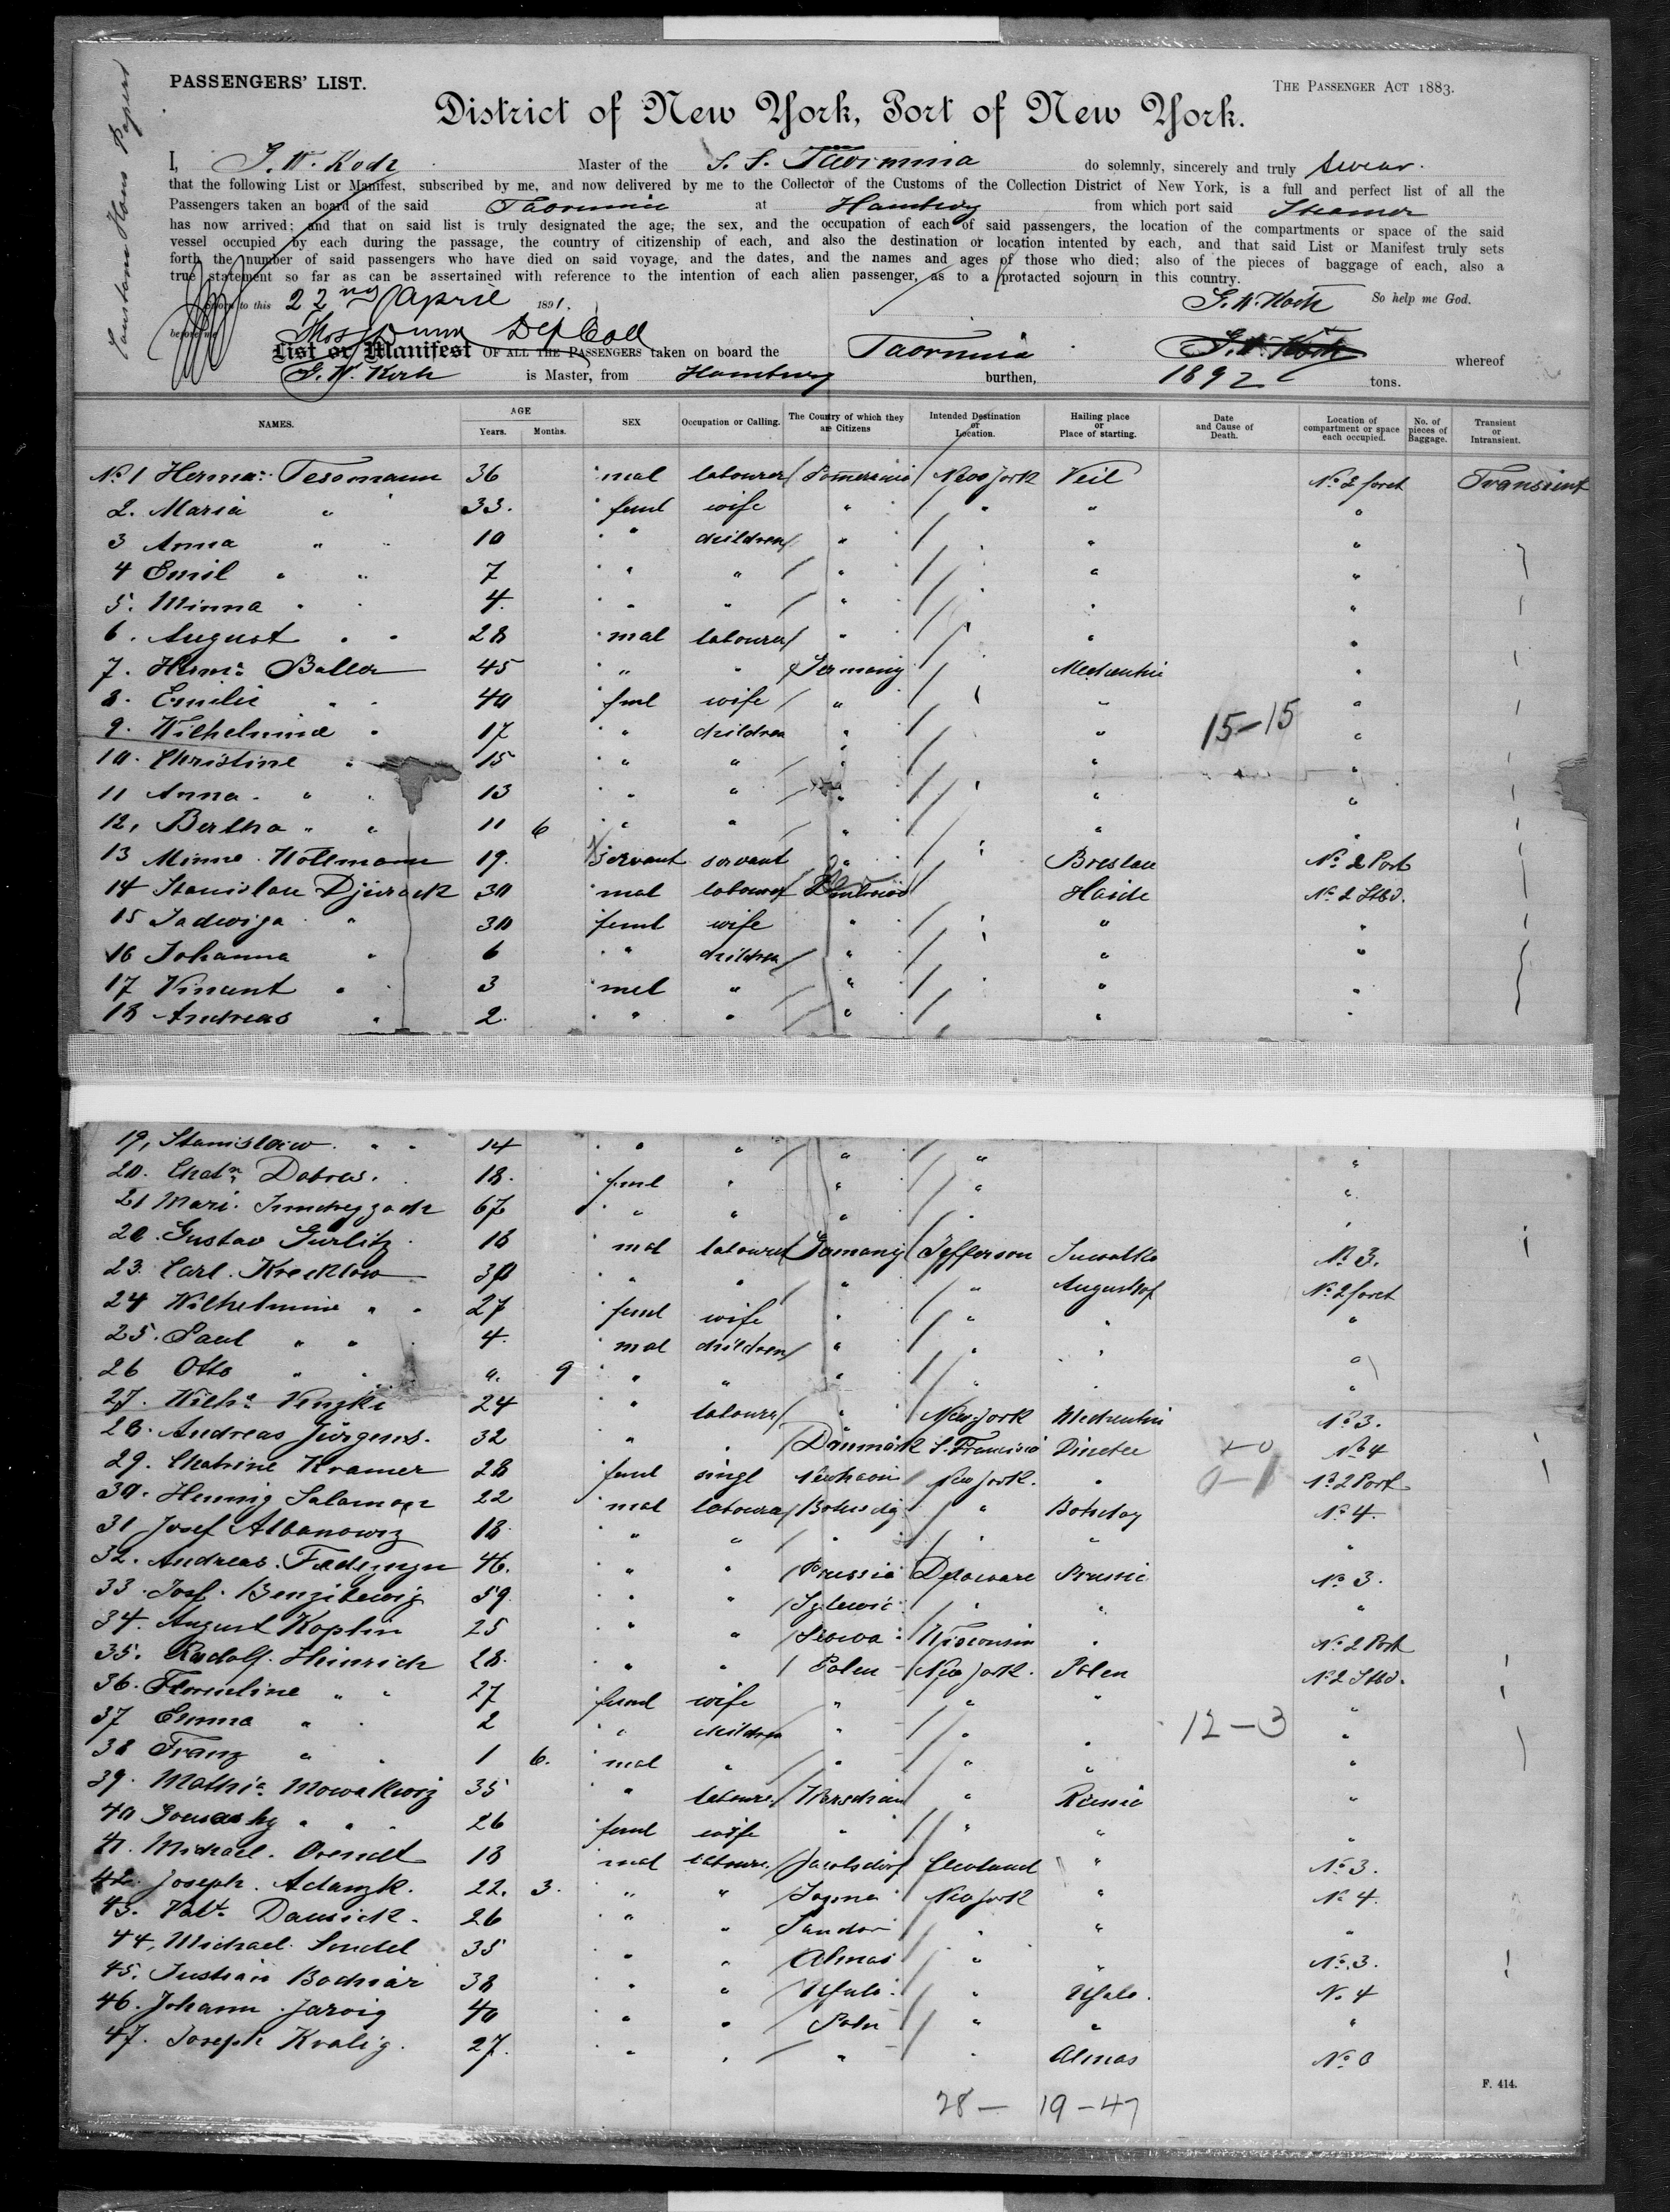 PASSENGERS' LIST.
THE PASSENGER ACT 1883.
Custom Hous Papers
District of New York, Port of New York.
I, G. W. Koch Master of the S. S. Taormina do solemnly, sincerely and truly swear.
that the following List or Manifest, subscribed by me, and now delivered by me to the Collector of the Customs of the Collection District of New York, is a full and perfect list of all the
Passengers taken an board of the said Taormina at Hamburg from which port said Steamer
has now arrived; and that on said list is truly designated the age, the sex, and the occupation of each of said passengers, the location of the compartments or space of the said
vessel occupied by each during the passage, the country of citizenship of each, and also the destination or location intented by each, and that said List or Manifest truly sets
forth the number of said passengers who have died on said voyage, and the dates, and the names and ages of those who died; also of the pieces of baggage of each, also a
true statement so far as can be assertained with reference to the intention of each alien passenger, as to a protacted sojourn in this country.
Sworn to this 22nd April 1891. G. W. Koch So help me God.
before me Thos Dunn Dep Coll
List or Manifest OF ALL THE PASSENGERS taken on board the Taormina G. W. Koch whereof
G. W. Koch is Master, from Hamburg burthen, 1892 tons.
NAMES. AGE Years. Months. SEX Occupation or Calling. The Country of which they are Citizens Intended Destination or Location. Hailing place or Place of starting. Date and Cause of Death. Location of compartment or space each occupied. No. of pieces of Baggage. Transient or Intransient.
No 1 Herma: Tessmann 36 mal labourer Pommerania New York Veil No 2 foret Transient
2. Maria " 33. feml wife " " " "
3 Anna " " 10 " children " " "
4 Emil " " 7 " " " " "
5. Minna " " 4. " " " " "
6. August " " 28 mal labourer " " " "
7. Herm: Baller 45 " " Germany Medenthin "
8. Emilie " " 40 feml wife " " "
9. Wilhelmine " 17 " children " " 15-15 "
10. Christine " 15 " " " " "
11 Anna " " 13 " " " " "
12, Bertha " " 11 6 " " " " "
13 Minna Hollmann 19. servant servant " Breslau No 2 Port
14 Stanislau Djurack 30 mal labourer Haide No 2 Stbd.
15 Jadwiga " 30 feml wife " " "
16 Johanna " 6 " children " " "
17 Vincent " 3 mel " " " "
18 Andreas " 2. " " " " "
19, Stanislaw " " 14 " " " " "
20. Chatn Dobras. 18. feml " " " "
21 Mari. 67 " " " " "
20. Gustav Gurlitz 18 mal labourer Germany Jefferson Suwalka No 3.
23. Carl. Krecklow 30 " " " " Augusthof No 2 foret
24 Wilhelmine " " 27 feml wife " " " "
25. Paul " " 4. mal children " " " "
26 Otto " " 9 " " " " "
27. Wilh: Venzki 24 " labourer " New York Medenthin No 3.
28. Andreas Jürgens. 32 " " Dänmark S. Francisco No 4
29. Chatrine Kramer 28 feml singl New York. " 0-1 No 2 Port
30. Hennig Salamon 22 mal labourer " No 4.
31 Josef Albanowiz 18 " " " " " "
32. Andreas. 46. " " Prussia Delaware Prussia No 3.
33. Josf. 59 " " " " "
34. August Koplin 25 " " Wisconsin " No 2 Port
35. Rudolf. Heinrich 28. " " Polen New York. Polen No 2 Stbd.
36. Florentine " " 27 feml wife " " " "
37 Emma " 2 " children " " " 12-3 "
38 Franz " " 1 6. mal " " " " "
39. Mathi: Mowalkwiz 35 " laboure. Warschau " Russia "
40 " " 26 feml wife " " " "
41. Michael. Arendt 18 mal laboure. Jacobsdorf Cleveland " No 3.
42. Joseph. Adamzk. 22. 3. " " New York " No 4.
43. Valt. Dausick. 26 " " Sandor " " "
44, Michael. Sendel 35 " " Almas " " No. 3.
45. Justian Bodnár 38 " " Ufalo " Ufalo. No 4
46. Johann. Jarvig 40 " " Polen " " "
47. Joseph Kralig. 27. " " " " Almas
28 - 19 - 47
F. 414.